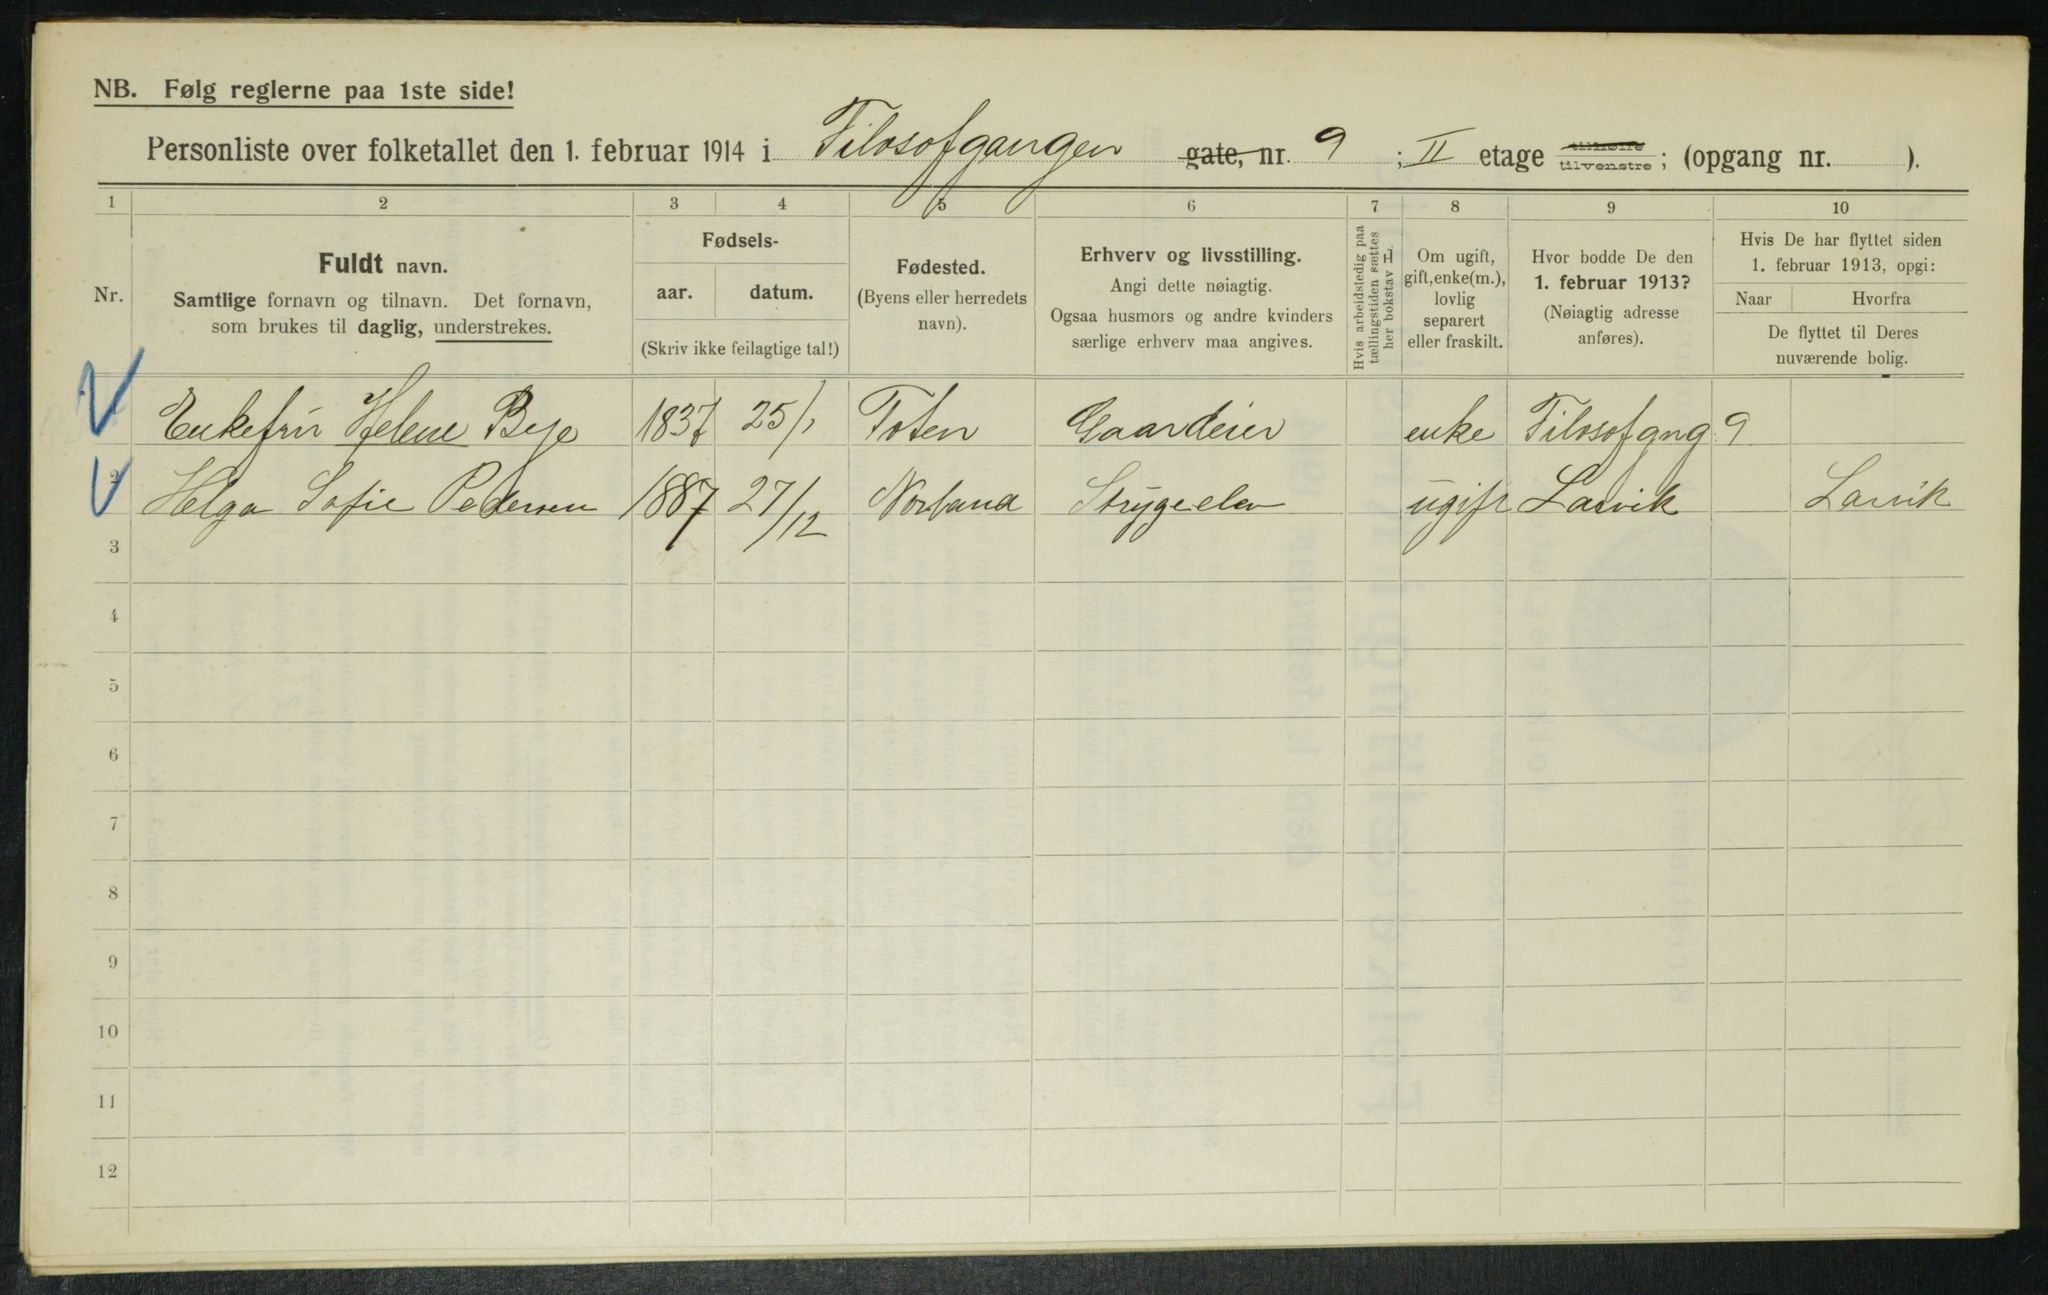 NB. Følg reglerne paa 1ste side!
Personliste over folketallet den 1. februar 1914 i Filosofgangen gate, nr. 9 ; II etage tilhøire tilvenstre ; (opgang nr. ).
1 2 3 4 5 6 7 8 9 10
Nr.
Fuldt navn.
Samtlige fornavn og tilnavn. Det fornavn,
som brukes til daglig, understrekes.
Fødsels-
aar. datum.
(Skriv ikke feilagtige tal!)
Fødested.
(Byens eller herredets
navn).
Erhverv og livsstilling.
Angi dette nøiagtig.
Ogsaa husmors og andre kvinders
særlige erhverv maa angives.
Hvis arbeidsledig paa
tællingstiden sættes
her bokstav L.
Om ugift,
gift, enke(m.),
lovlig
separert
eller fraskilt.
Hvor bodde De den
1. februar 1913?
(Nøiagtig adresse
anføres).
Hvis De har flyttet siden
1. februar 1913, opgi:
Naar Hvorfra
De flyttet til Deres
nuværende bolig.
Enkefru Helene Bye 1837 25/1 Toten Gaardeier enke Filosofgang 9
2 Helga Sofie Pedersen 1887 27/12 Norland Strygeelev ugift Larvik Larvik
3
4
5
6
7
8
9
10
11
12